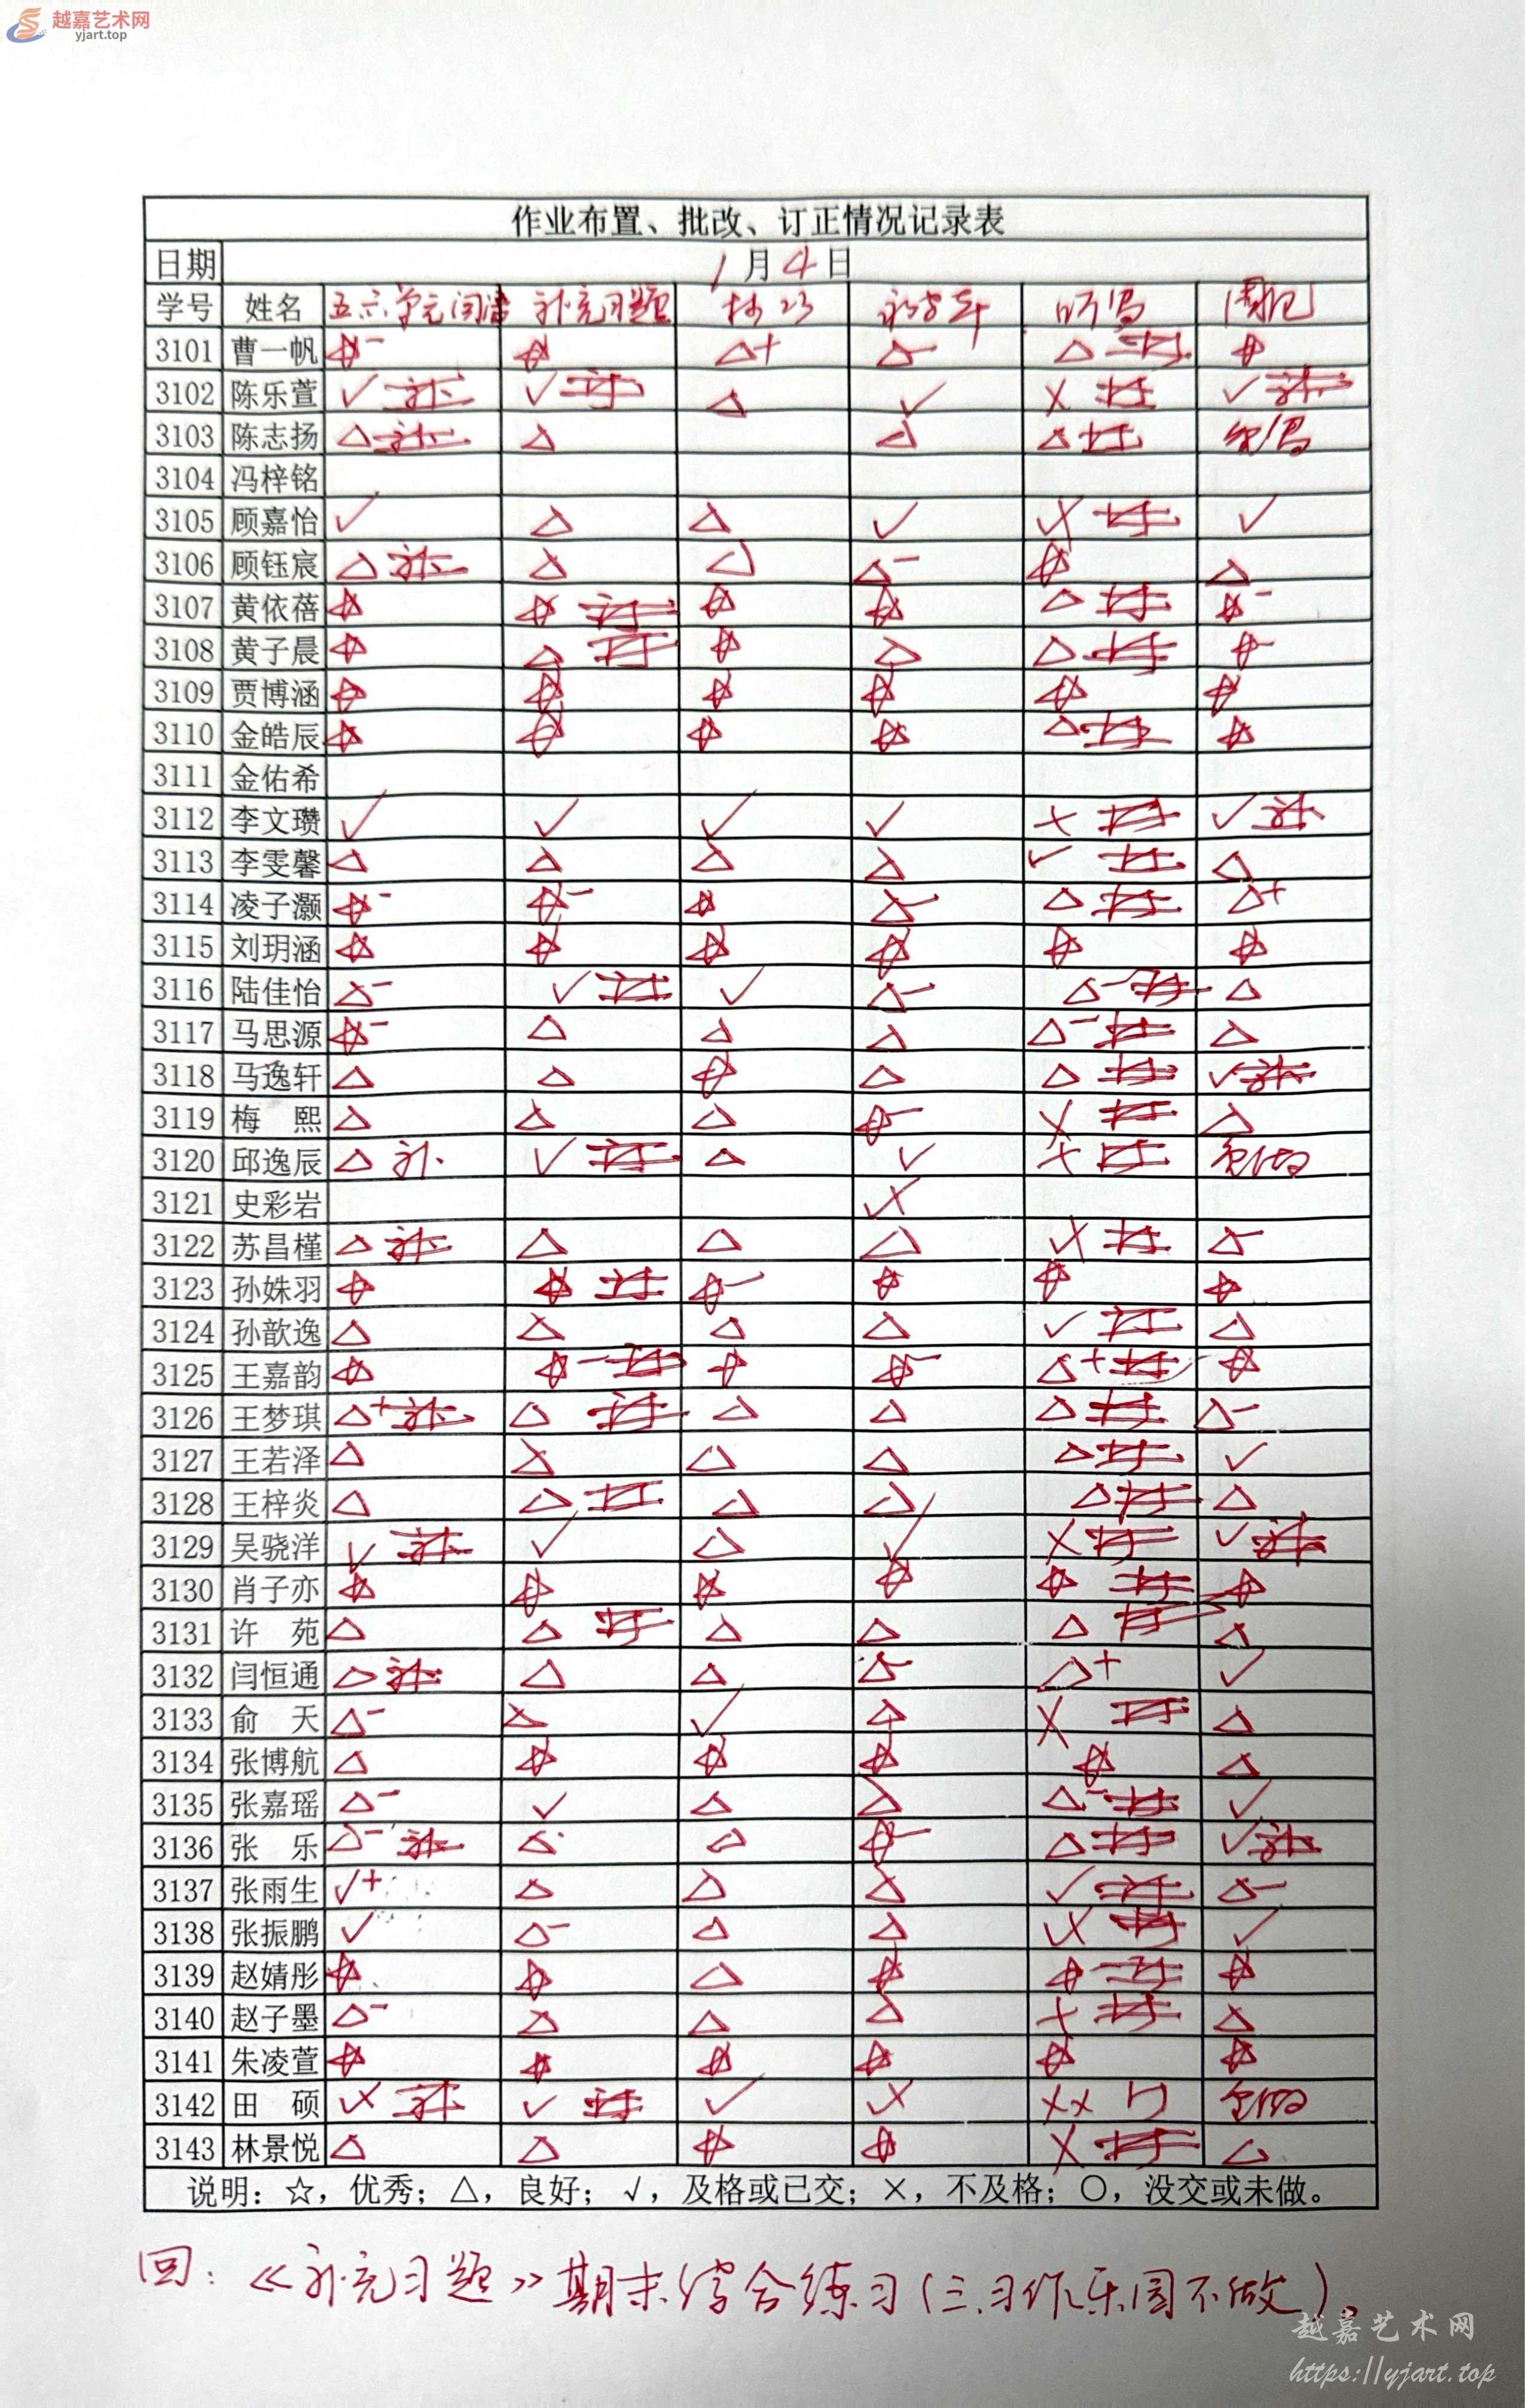 越嘉艺术网
yjart.top
作业布置、批改、订正情况记录表
日期 1月4日
学号 姓名 五六单元阅读 补充习题 听写 周记
3101 曹一帆 ☆- ☆ △+ △- △ 订 ☆
3102 陈乐萱 √ 补 √ 订 △ √ × 订 √ 补
3103 陈志扬 △ 补 △ △ △ 订
3104 冯梓铭
3105 顾嘉怡 √ △ △ √ √× 订 √
3106 顾钰宸 △ 补 △ △ △- ☆ △
3107 黄依蓓 ☆ ☆ 订 ☆ ☆ △ 订 ☆-
3108 黄子晨 ☆ △ 订 ☆ △ △ 订 ☆-
3109 贾博涵 ☆ ☆ ☆ ☆ ☆ ☆
3110 金皓辰 ☆ ☆ ☆ ☆ △ 订 ☆
3111 金佑希
3112 李文瓒 √ √ √ √ × 订 √ 补
3113 李雯馨 △ △ △ △ √ 订 △
3114 凌子灏 ☆- ☆- ☆ △- △ 订 △+
3115 刘玥涵 ☆ ☆ ☆ ☆ ☆ ☆
3116 陆佳怡 △- √ 订 √ △- △- 订 △
3117 马思源 ☆- △ △ △ △- 订 △
3118 马逸轩 △ △ ☆ △ △ 订 √ 补
3119 梅 熙 △ △ △ ☆- × 订 △
3120 邱逸辰 △ 补 √ 订 △ √ × 订
3121 史彩岩 √×
3122 苏昌槿 △ 补 △ △ △ √× 订 △-
3123 孙姝羽 ☆ ☆ 订 ☆- ☆ ☆ ☆
3124 孙歆逸 △ △ △ △ √ 订 △
3125 王嘉韵 ☆ ☆- 订 ☆ ☆- △+ 订 ☆
3126 王梦琪 △+ 补 △ 订 △ △ △ 订 △-
3127 王若泽 △ △ △ △ △ 订 √
3128 王梓炎 △ △ 订 △ △ △ 订 △
3129 吴骁洋 √ 补 √ △ √ × 订 √ 补
3130 肖子亦 ☆ ☆ ☆ ☆ ☆ 订 ☆
3131 许 苑 △ △ 订 △ △ △ 订 △
3132 闫恒通 △ 补 △ △ △- △+ √
3133 俞 天 △- △ √ △ × 订 △
3134 张博航 △ ☆ ☆ ☆ ☆ △
3135 张嘉瑶 △- √ △ △ △- 订 √
3136 张 乐 △- 补 △ △ ☆- △ 订 √ 补
3137 张雨生 √+ △ △ △ √ 订 △-
3138 张振鹏 √ △- △ △ √× 订 √
3139 赵婧彤 ☆ ☆ △ ☆ ☆- 订 ☆
3140 赵子墨 △- △ △ △ × 订 △
3141 朱凌萱 ☆ ☆ ☆ ☆ ☆ ☆
3142 田 硕 √× 补 √ 订 √ √× ××
3143 林景悦 △ △ ☆ ☆ × 订 △
说明：☆，优秀；△，良好；√，及格或已交；×，不及格；○，没交或未做。
回：《补充习题》期末综合练习(三.习作乐园不做)。
越嘉艺术网
https://yjart.top